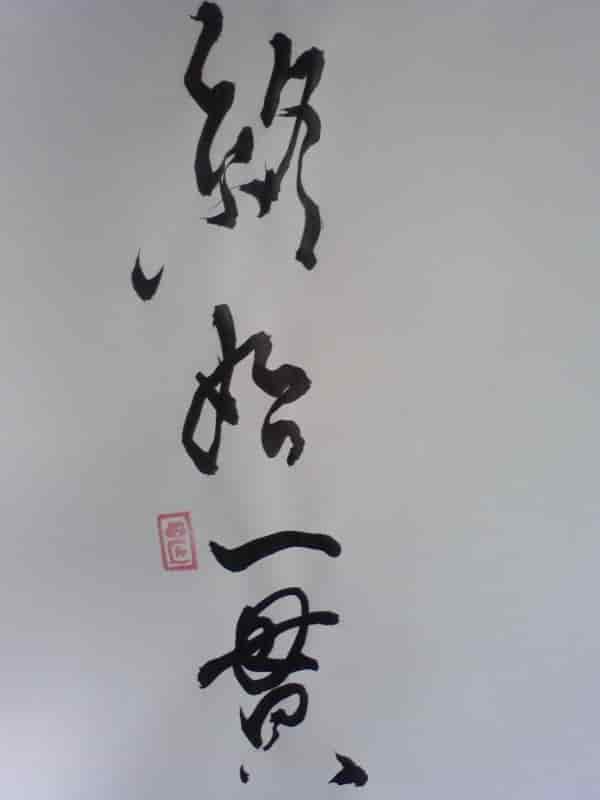 終始一貫